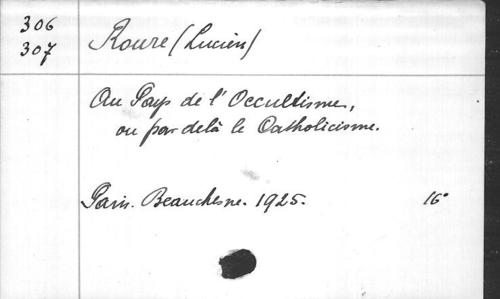 306
307
Roure (Lucien)
Au Pays de l'Occultisme,
ou par delà le Catholicisme.
Paris. Beauchesne. 1925. 16°